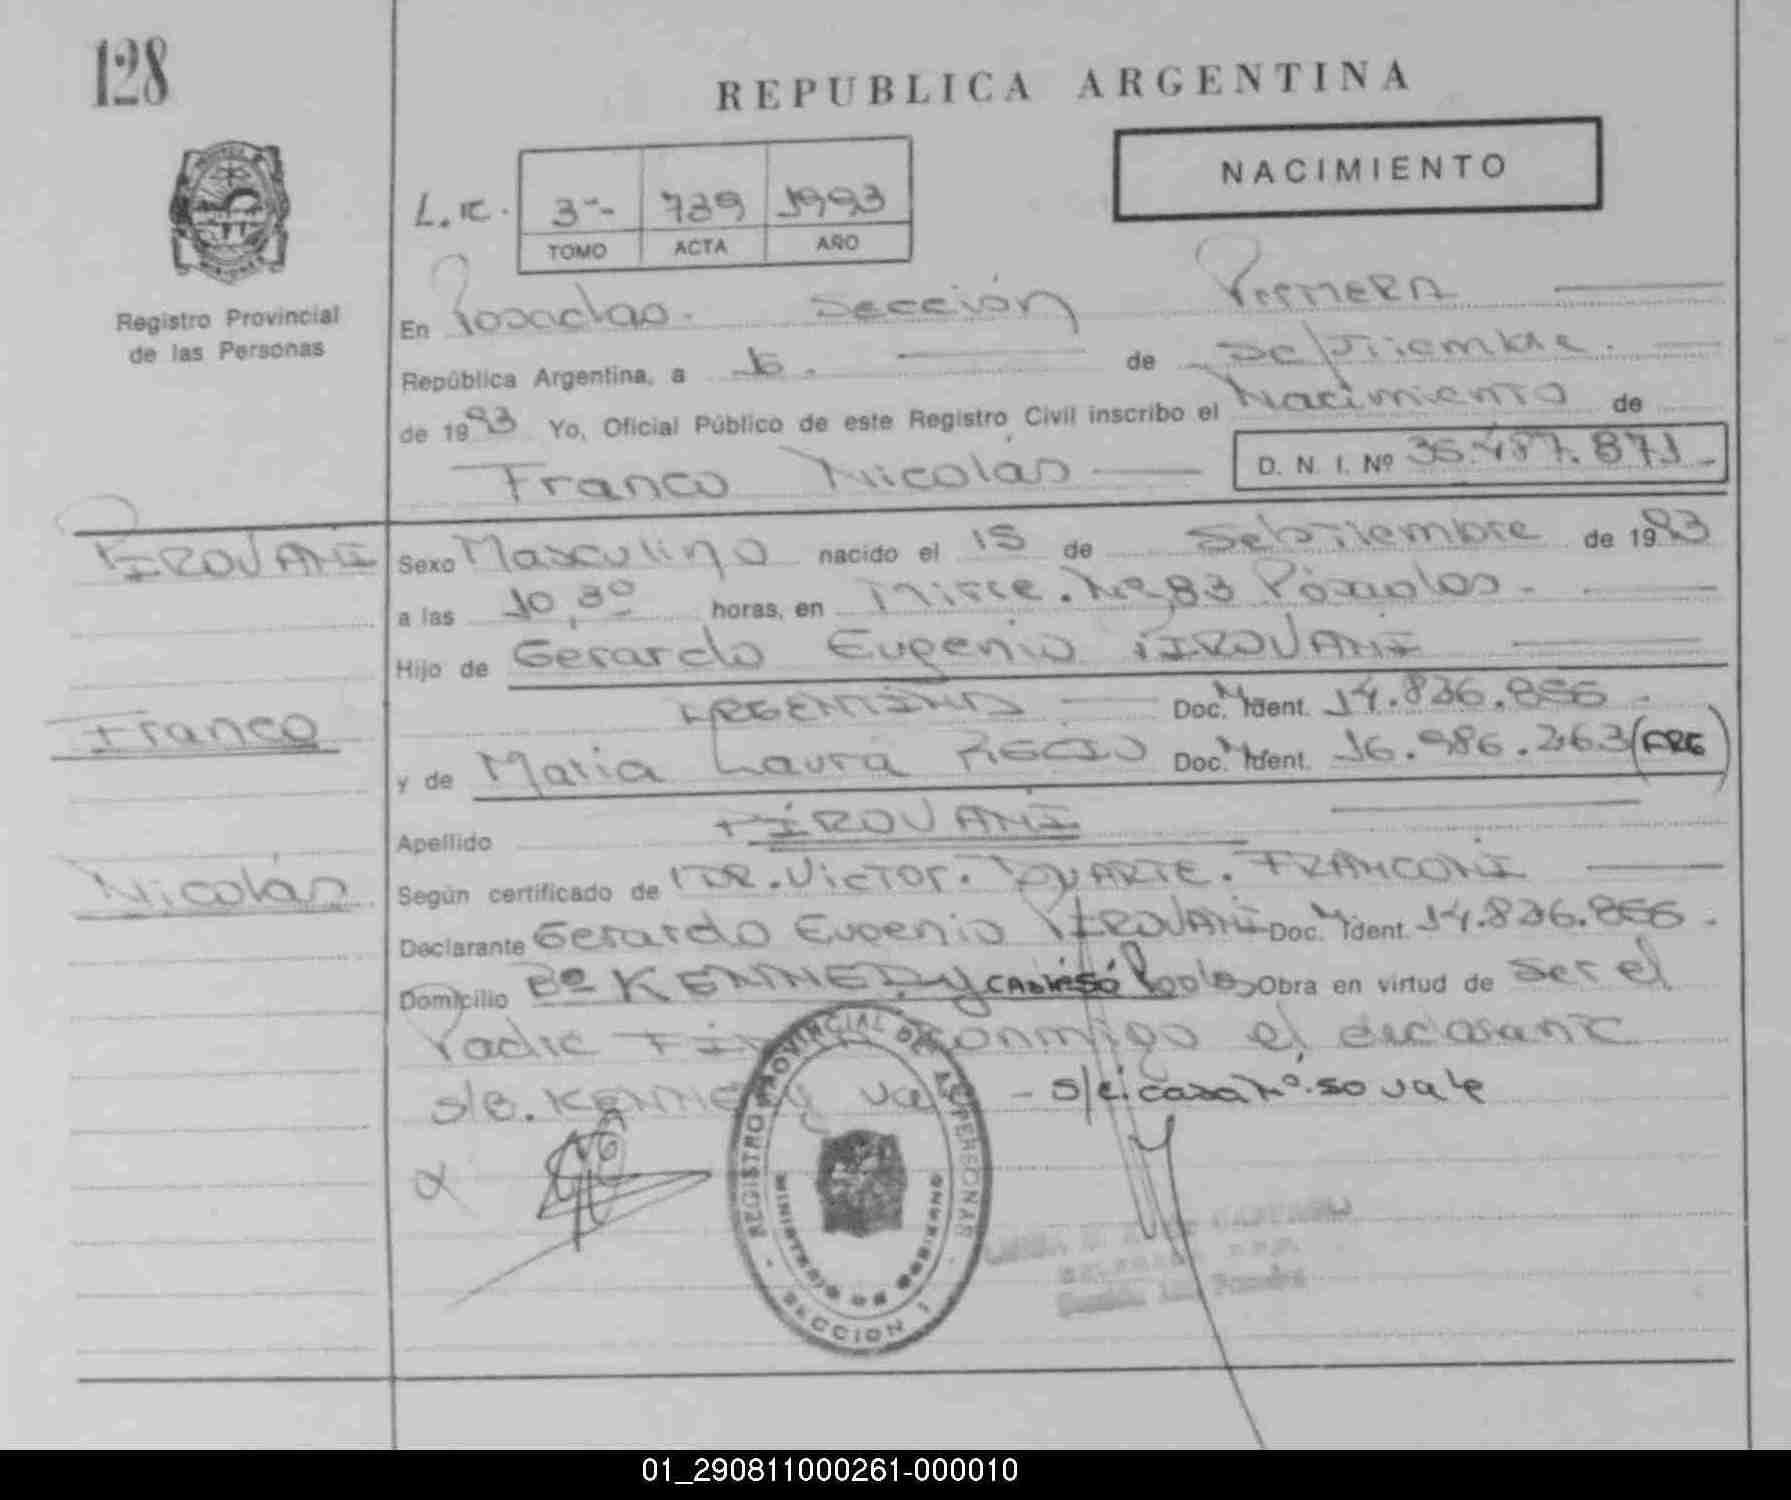 128
REPUBLICA ARGENTINA
NACIMIENTO
3 739 1993
TOMO ACTA AÑO
Registro Provincial
de las Personas
En Posadas. Sección Primera
República Argentina, a 16. de Septiembre.
de 1993 Yo, Oficial Público de este Registro Civil inscribo el Nacimiento de
Franco Nicolás D. N. I. Nº .487.871
PIROVANI
Sexo Masculino nacido el 15 de Septiembre de 1993
a las 10,30 horas, en Nº 83 Posadas.
Hijo de Gerardo Eugenio PIROVANI
Argentino Doc. Ident. 14.836.856
Franco
y de Maria Laura RECIO Doc. Ident. 16.986.263 (ARG)
Apellido PIROVANI
Nicolás
Según certificado de DR. Victor. DUARTE. FRANCONI
Declarante Gerardo Eugenio PIROVANI Doc. Ident. 14.836.856.
Domicilio Bº KENNEDY Obra en virtud de ser el
Padre Firma conmigo el declarante
s/e. KENNEDY vale - s/e. casa Nº. 50 vale
REGISTRO PROVINCIAL DE LAS PERSONAS
MINISTERIO DE GOBIERNO
SECCION 1
01_290811000261-000010